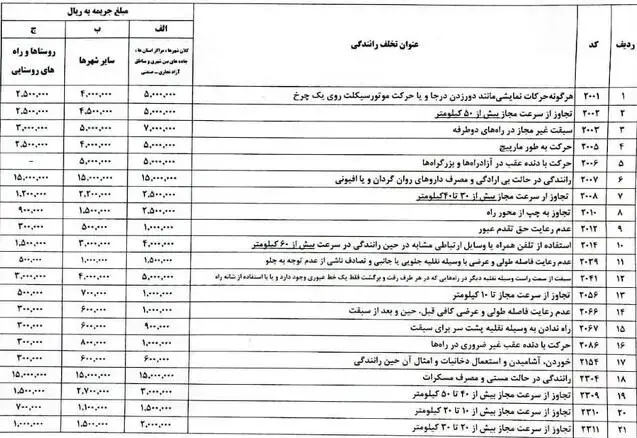 ردیف کد عنوان تخلف رانندگی مبلغ جریمه به ریال
الف ب ج
کلان شهرها ، مراکز استان ها ، جاده های بین شهری و مناطق آزاد تجاری _ صنعتی سایر شهرها روستاها و راه های روستایی
۱ ۲۰۰۱ هرگونه حرکات نمایشی مانند دورزدن درجا و یا حرکت موتورسیکلت روی یک چرخ ۵,۰۰۰,۰۰۰ ۴,۰۰۰,۰۰۰ ۲,۵۰۰,۰۰۰
۲ ۲۰۰۲ تجاوز از سرعت مجاز بیش از ۵۰ کیلومتر ۵,۰۰۰,۰۰۰ ۴,۵۰۰,۰۰۰ ۲,۵۰۰,۰۰۰
۳ ۲۰۰۳ سبقت غیر مجاز در راه‌های دوطرفه ۷,۰۰۰,۰۰۰ ۵,۰۰۰,۰۰۰ ۳,۰۰۰,۰۰۰
۴ ۲۰۰۵ حرکت به طور مارپیچ ۵,۰۰۰,۰۰۰ ۴,۰۰۰,۰۰۰ ۲,۵۰۰,۰۰۰
۵ ۲۰۰۶ حرکت با دنده عقب در آزادراه‌ها و بزرگراه‌ها ۵,۰۰۰,۰۰۰ ۵,۰۰۰,۰۰۰ -
۶ ۲۰۰۷ رانندگی در حالت بی ارادگی و مصرف داروهای روان گردان و یا افیونی ۱۵,۰۰۰,۰۰۰ ۱۵,۰۰۰,۰۰۰ ۱۵,۰۰۰,۰۰۰
۷ ۲۰۰۸ تجاوز از سرعت مجاز بیش از ۳۰ تا ۴۰ کیلومتر ۲,۵۰۰,۰۰۰ ۲,۲۰۰,۰۰۰ ۱,۲۰۰,۰۰۰
۸ ۲۰۱۰ تجاوز به چپ از محور راه ۲,۵۰۰,۰۰۰ ۱,۵۰۰,۰۰۰ ۹۰۰,۰۰۰
۹ ۲۰۱۲ عدم رعایت حق تقدم عبور ۱,۰۰۰,۰۰۰ ۵۰۰,۰۰۰ ۳۰۰,۰۰۰
۱۰ ۲۰۱۴ استفاده از تلفن همراه یا وسایل ارتباطی مشابه در حین رانندگی در سرعت بیش از ۶۰ کیلومتر ۴,۰۰۰,۰۰۰ ۳,۰۰۰,۰۰۰ ۱,۵۰۰,۰۰۰
۱۱ ۲۰۳۹ عدم رعایت فاصله طولی و عرضی با وسیله نقلیه جلویی یا جانبی و تصادف ناشی از عدم توجه به جلو ۱,۵۰۰,۰۰۰ ۱,۰۰۰,۰۰۰ ۵۰۰,۰۰۰
۱۲ ۲۰۴۱ سبقت از سمت راست وسیله نقلیه دیگر در راه‌هایی که در هر طرف رفت و برگشت فقط یک خط عبوری وجود دارد و یا با استفاده از شانه راه ۵,۰۰۰,۰۰۰ ۴,۰۰۰,۰۰۰ ۳,۰۰۰,۰۰۰
۱۳ ۲۰۵۶ تجاوز از سرعت مجاز تا ۱۰ کیلومتر ۱,۰۰۰,۰۰۰ ۷۰۰,۰۰۰ ۵۰۰,۰۰۰
۱۴ ۲۰۶۶ عدم رعایت فاصله طولی و عرضی کافی قبل، حین و بعد از سبقت ۱,۰۰۰,۰۰۰ ۶۰۰,۰۰۰ ۳۰۰,۰۰۰
۱۵ ۲۰۶۷ راه ندادن به وسیله نقلیه پشت سر برای سبقت ۹۰۰,۰۰۰ ۶۰۰,۰۰۰ ۳۰۰,۰۰۰
۱۶ ۲۰۸۶ حرکت با دنده عقب غیر ضروری در راه‌ها ۱,۰۰۰,۰۰۰ ۸۰۰,۰۰۰ ۳۰۰,۰۰۰
۱۷ ۲۱۵۴ خوردن، آشامیدن و استعمال دخانیات و امثال آن حین رانندگی ۶۰۰,۰۰۰ ۶۰۰,۰۰۰ ۳۰۰,۰۰۰
۱۸ ۲۳۰۴ رانندگی در حالت مستی و مصرف مسکرات ۱۵,۰۰۰,۰۰۰ ۱۵,۰۰۰,۰۰۰ ۱۵,۰۰۰,۰۰۰
۱۹ ۲۳۰۹ تجاوز از سرعت مجاز بیش از ۴۰ تا ۵۰ کیلومتر ۳,۰۰۰,۰۰۰ ۲,۷۰۰,۰۰۰ ۱,۵۰۰,۰۰۰
۲۰ ۲۳۱۰ تجاوز از سرعت مجاز بیش از ۱۰ تا ۲۰ کیلومتر ۱,۵۰۰,۰۰۰ ۱,۱۰۰,۰۰۰ ۷۰۰,۰۰۰
۲۱ ۲۳۱۱ تجاوز از سرعت مجاز بیش از ۲۰ تا ۳۰ کیلومتر ۲,۰۰۰,۰۰۰ ۱,۵۰۰,۰۰۰ ۱,۰۰۰,۰۰۰